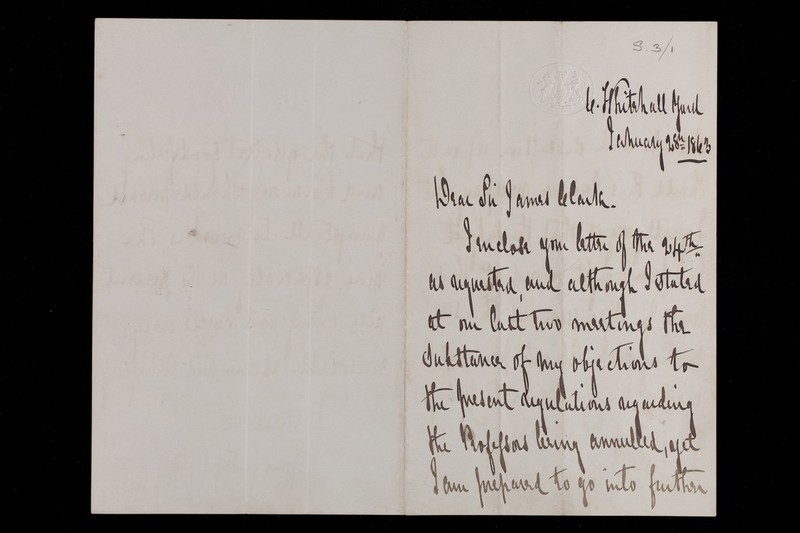 S. 3/1
6. Whitehall Yard
January 28th 1863
Dear Sir James Clark.
I enclose your letter of the 24th
as requested, and although I stated
at our last two meetings the
substance of my objections to
the present regulations regarding
the Professors being annulled, yet
I am prepared to go into further